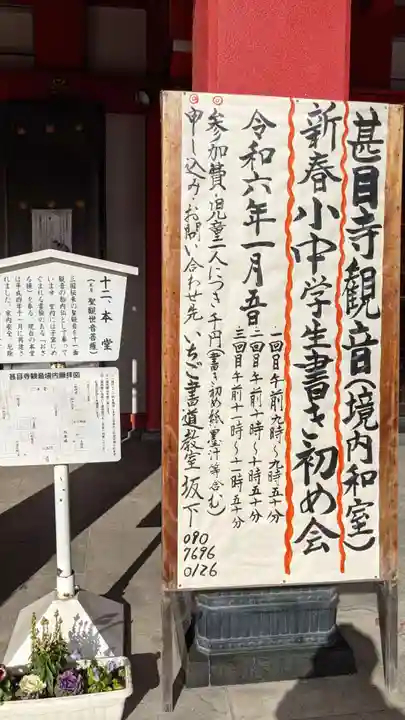 甚目寺観音(境内和室)
新春小中学生書き初め会
令和六年一月五日
一回目午前九時〜九時五十分
二回目午前十時〜十時五十分
三回目午前十一時〜十一時五十分
◎参加費・児童一人につき千円(書き初め紙・墨汁等含む)
◎申し込み・お問い合わせ先 いちご書道教室 坂下
080
7696
0126
十二、本堂
(本尊 聖観世音菩薩)
三国伝来の聖観音を十一面
観音の胎内仏として奉って
甚目寺観音境内参拝図